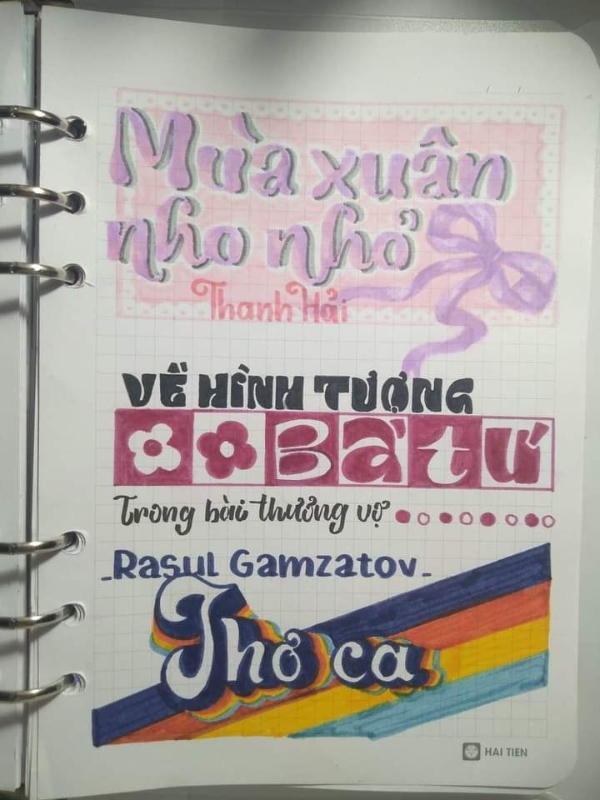 Mùa xuân
nho nhỏ
Thanh Hải
VỀ HÌNH TƯỢNG
BÀ TÚ
Trong bài thương vợ
_Rasul Gamzatov_
Thơ ca
HAI TIEN